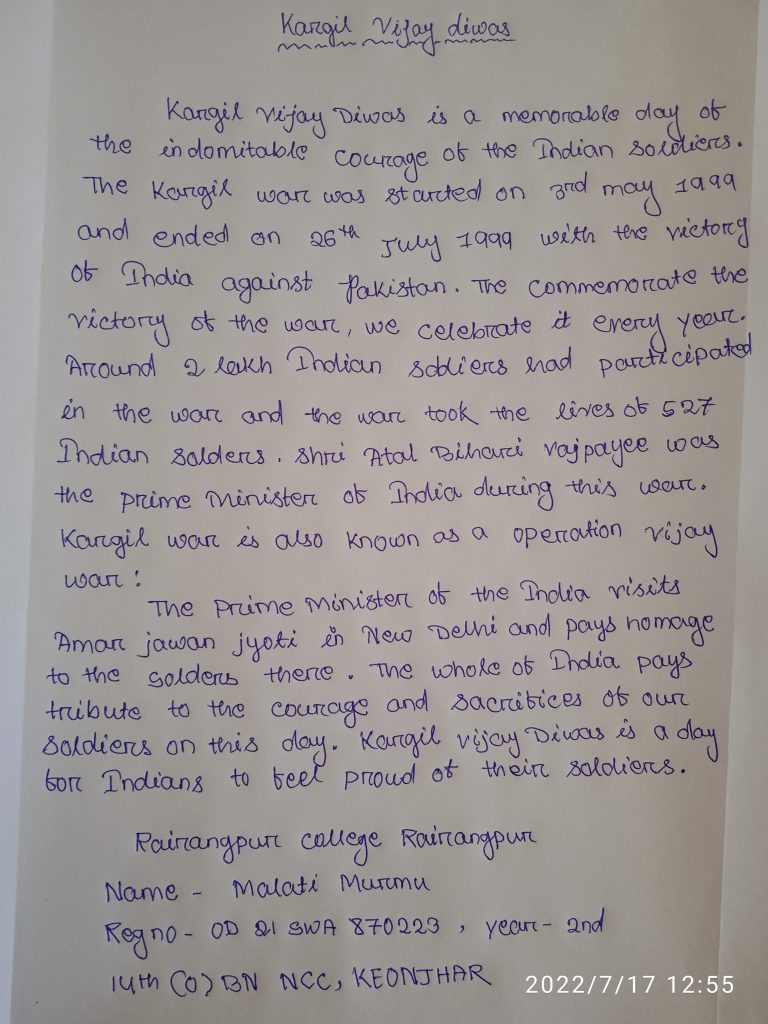 Kargil Vijay diwas
Kargil Vijay Diwas is a memorable day of
the indomitable courage of the Indian soldiers.
The Kargil war was started on 3rd may 1999
and ended on 26th July 1999 with the victory
of India against Pakistan. The commemorate the
victory of the war, we celebrate it every year.
Around 2 lakh Indian soldiers had participated
in the war and the war took the lives of 527
Indian solders. Shri Atal Bihari vajpayee was
the prime Minister of India during this war.
Kargil war is also known as a operation vijay
war:
The Prime Minister of the India visits
Amar jawan jyoti in New Delhi and pays homage
to the solders there. The whole of India pays
tribute to the courage and sacrifices of our
soldiers on this day. Kargil vijay Diwas is a day
for Indians to feel proud of their soldiers.
Rairangpur college Rairangpur
Name - Malati Murmu
Regno - OD 21 SWA 870223, year - 2nd
14th (O) BN NCC, KEONJHAR
2022/7/17 12:55